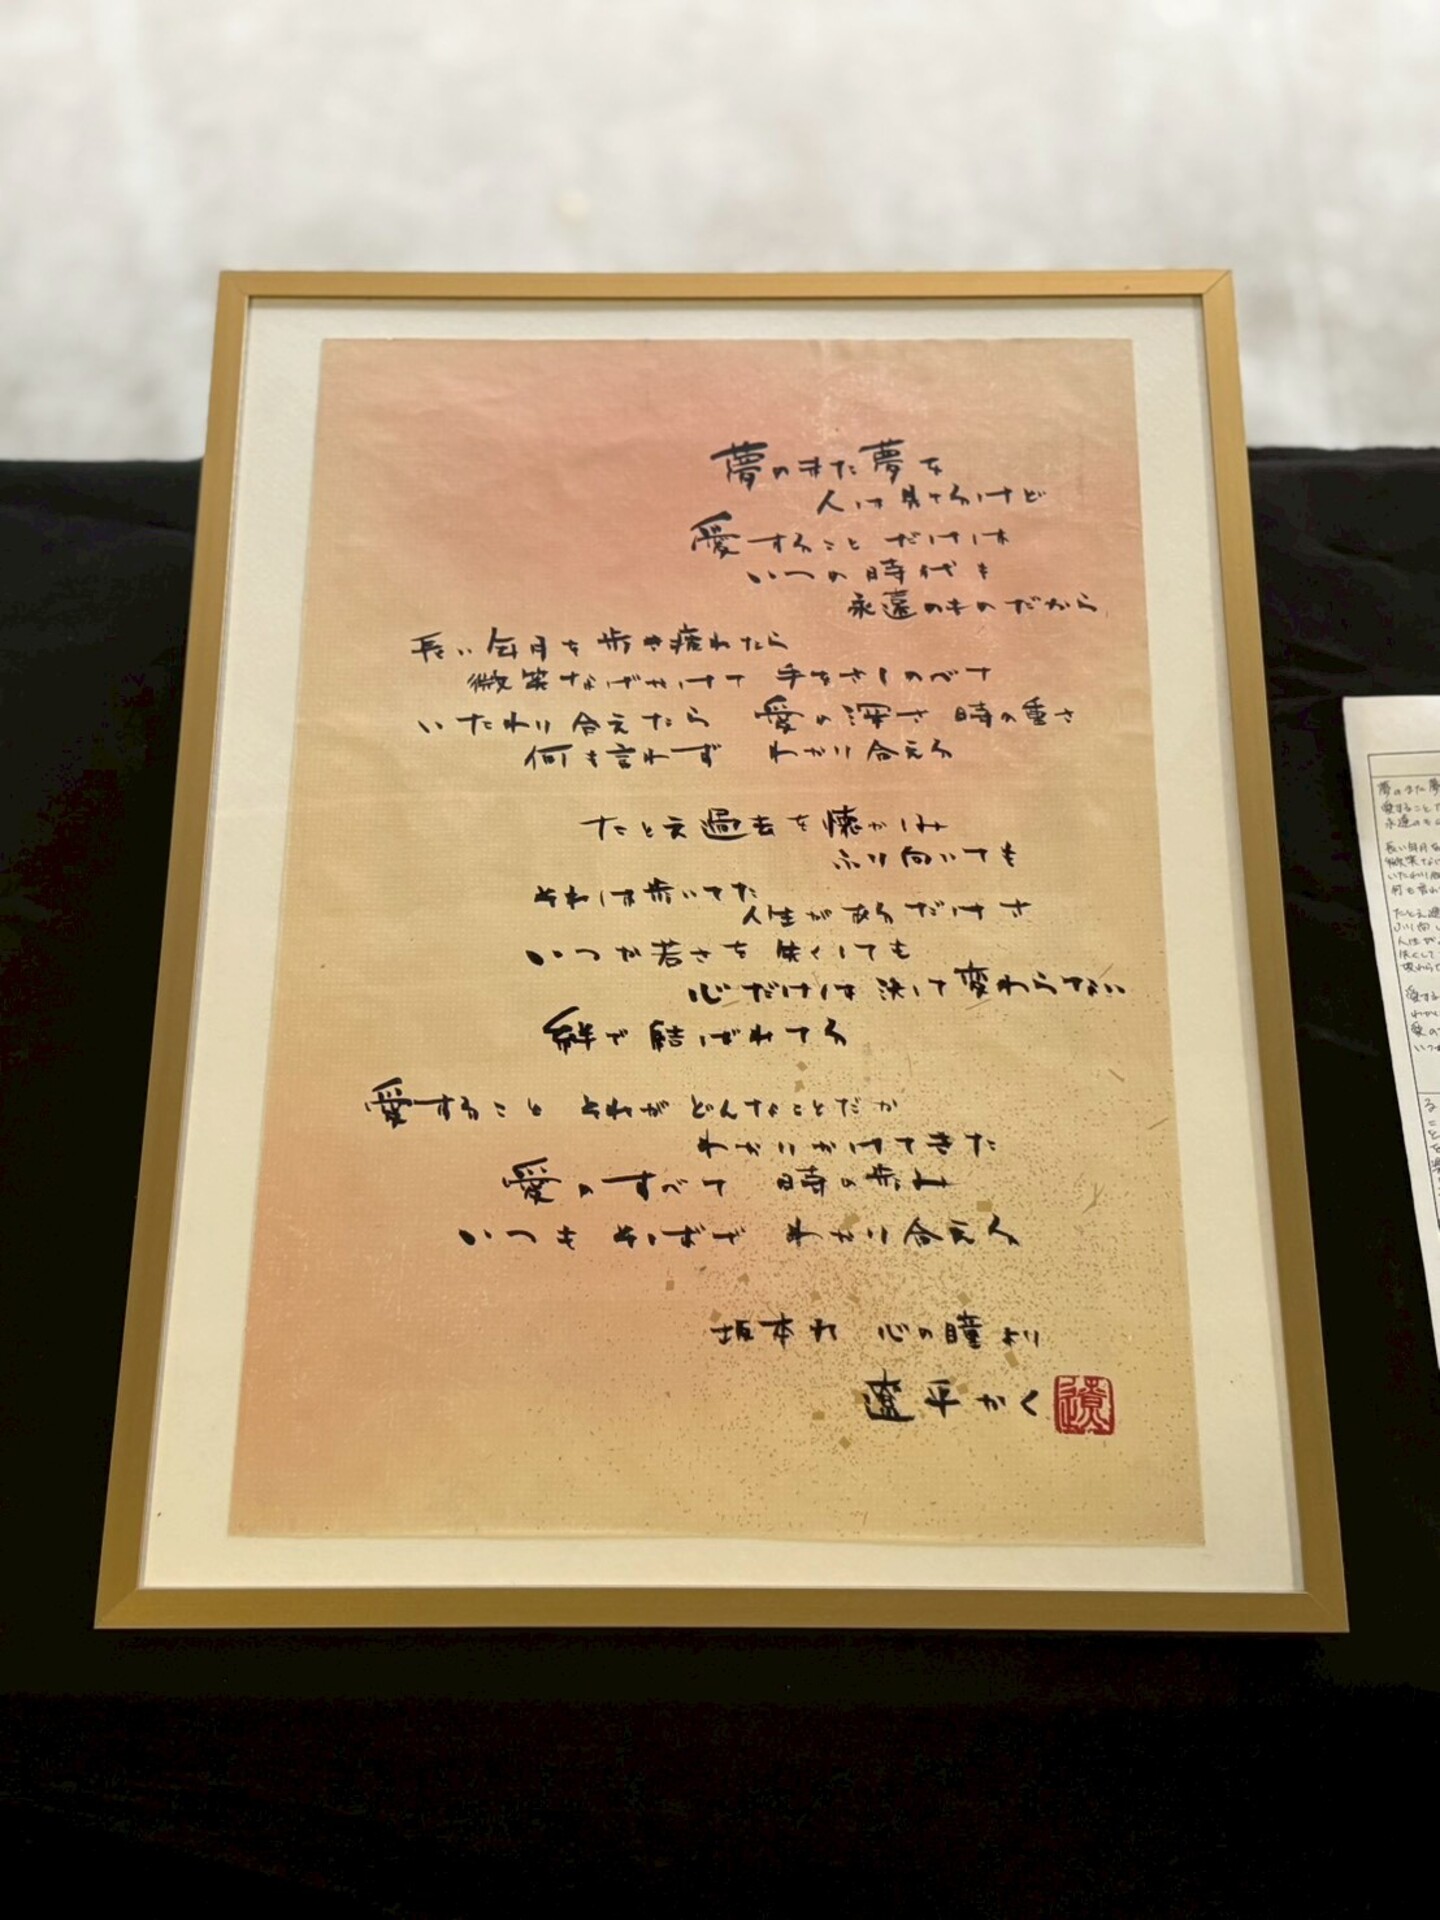 夢のまた夢を
人は見るけど
愛することだけは
いつの時代も
永遠のものだから
長い年月を歩き疲れたら
微笑なげかけて 手をさしのべて
いたわり合えたら 愛の深さ 時の重さ
何も言わず わかり合える
たとえ過去を懐かしみ
ふり向いても
それは歩いてきた
人生があるだけさ
いつか若さを失くしても
心だけは 決して変わらない
絆で結ばれてる
愛すること それがどんなことだか
わかりかけてきた
愛のすべて 時の歩み
いつもそばで わかり合える
坂本九 心の瞳より
遼平かく
遼
夢のまた夢
愛することだ
永遠のもの
長い年月を
微笑なげ
いたわり
何も言わ
たとえ過
ふり向い
人生が
失くして
愛する
わかり
愛の
いつも